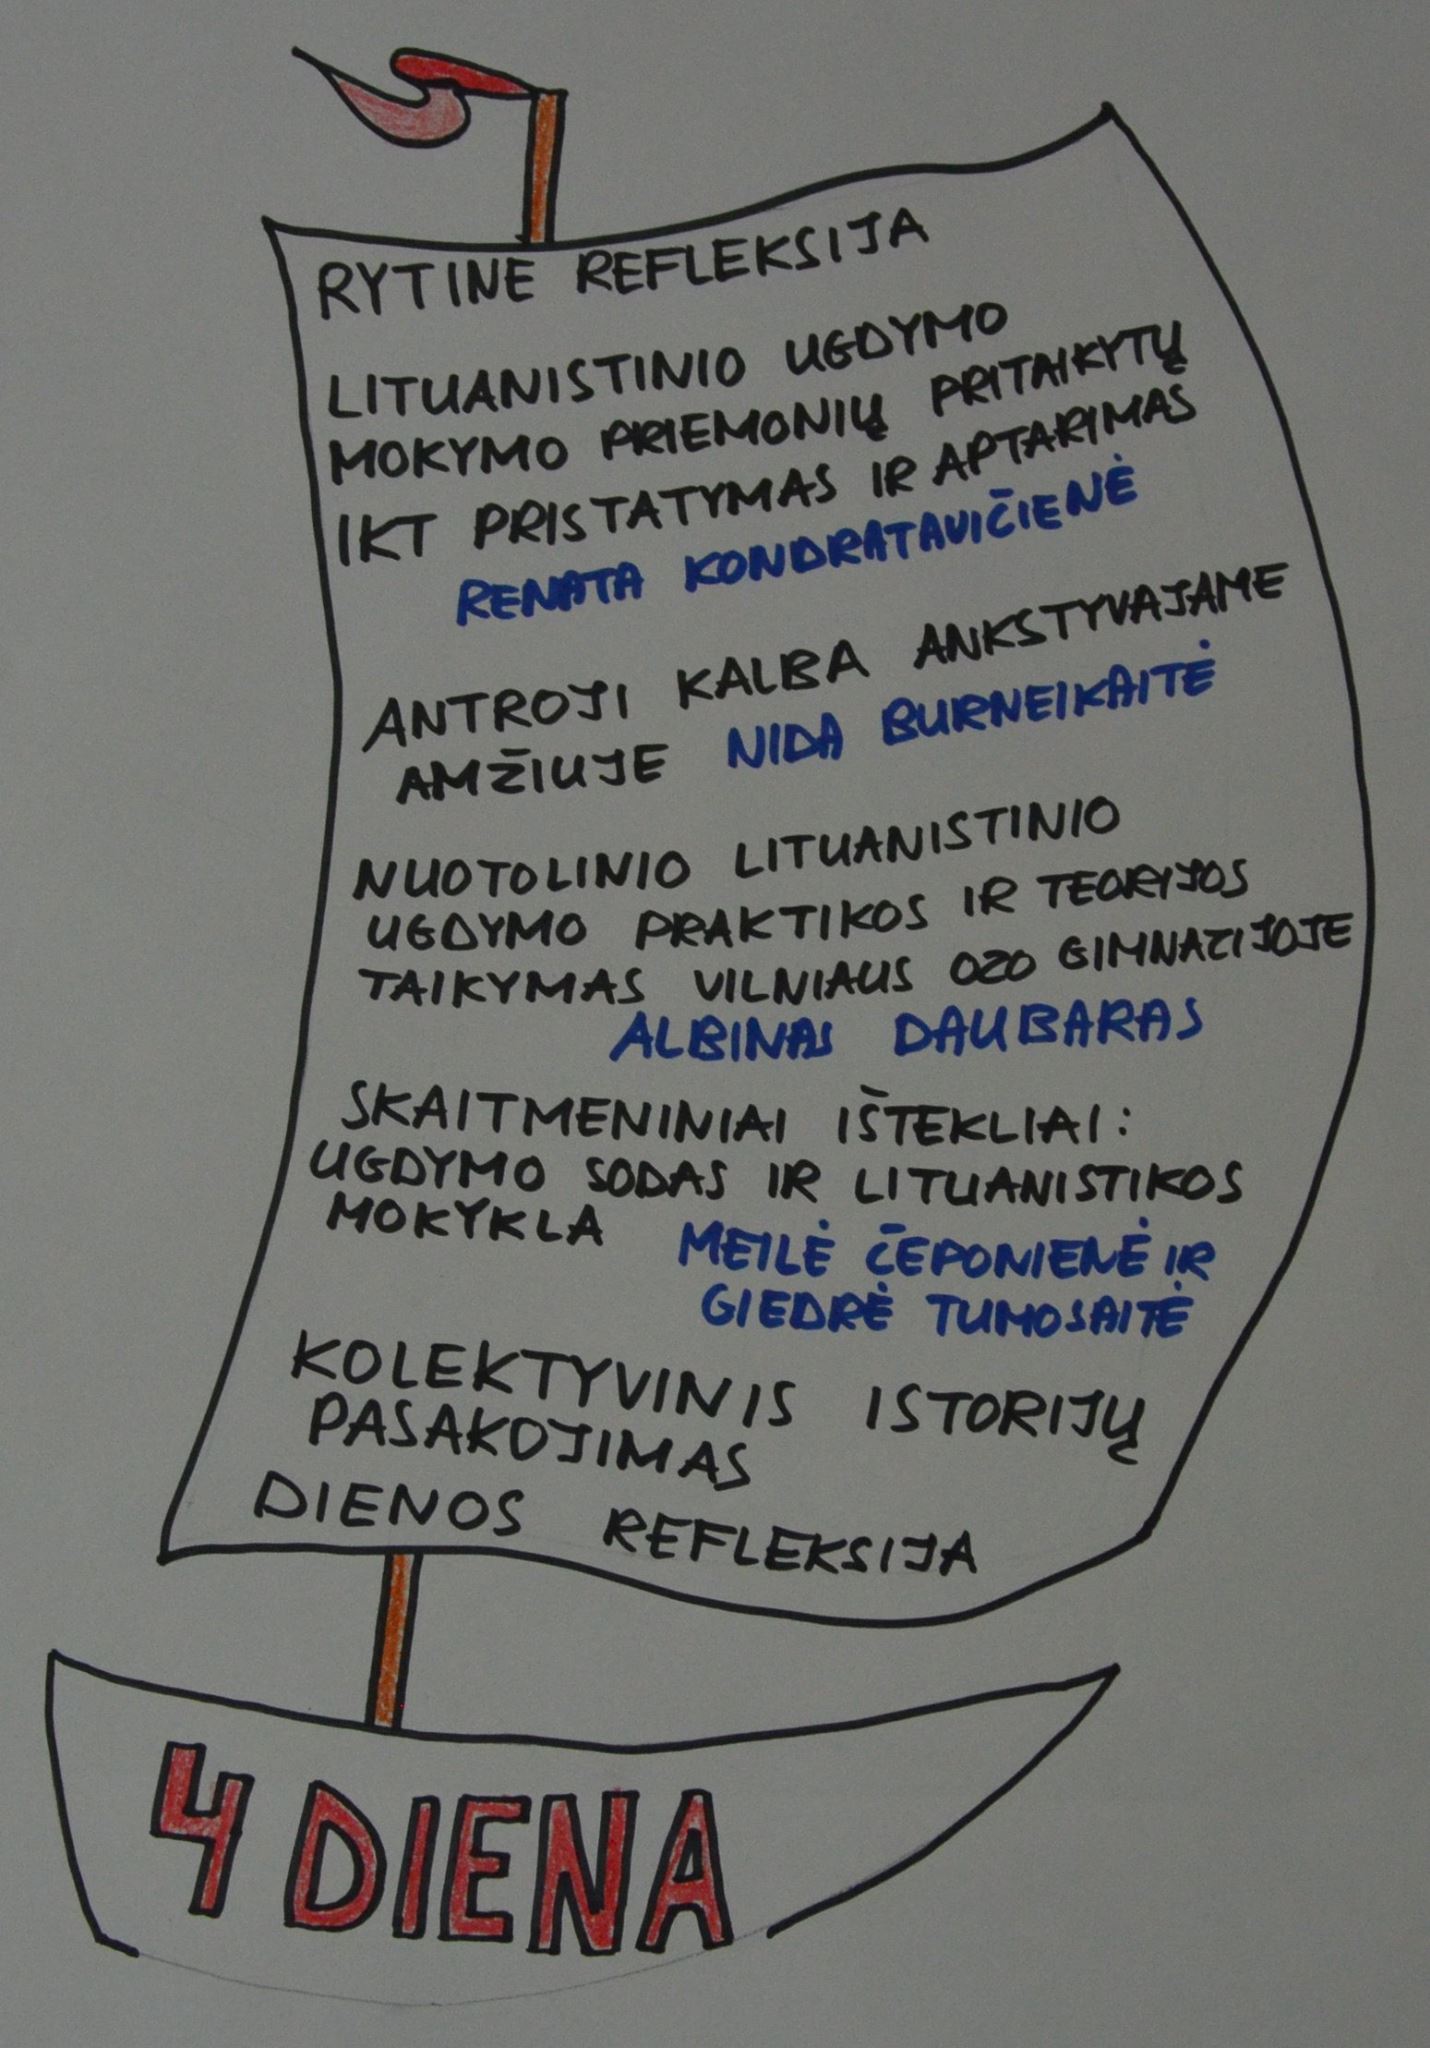 RYTINE REFLEKSIJA
LITUANISTINIO UGDYMO
MOKYMO PRIEMONIŲ PRITAIKYTŲ
IKT PRISTATYMAS IR APTARIMAS
RENATA KONDRATAVIČIENĖ
ANTROJI KALBA ANKSTYVAJAME
AMŽIUJE NIDA BURNEIKAITĖ
NUOTOLINIO LITUANISTINIO
UGDYMO PRAKTIKOS IR TEORIJOS
TAIKYMAS VILNIAUS OZO GIMNAZIJOJE
ALBINAS DAUBARAS
SKAITMENINIAI IŠTEKLIAI:
UGDYMO SODAS IR LITUANISTIKOS
MOKYKLA MEILĖ ČEPONIENĖ IR
GIEDRĖ TUMOSAITĖ
KOLEKTYVINIS ISTORIJŲ
PASAKOJIMAS
DIENOS REFLEKSIJA
4 DIENA